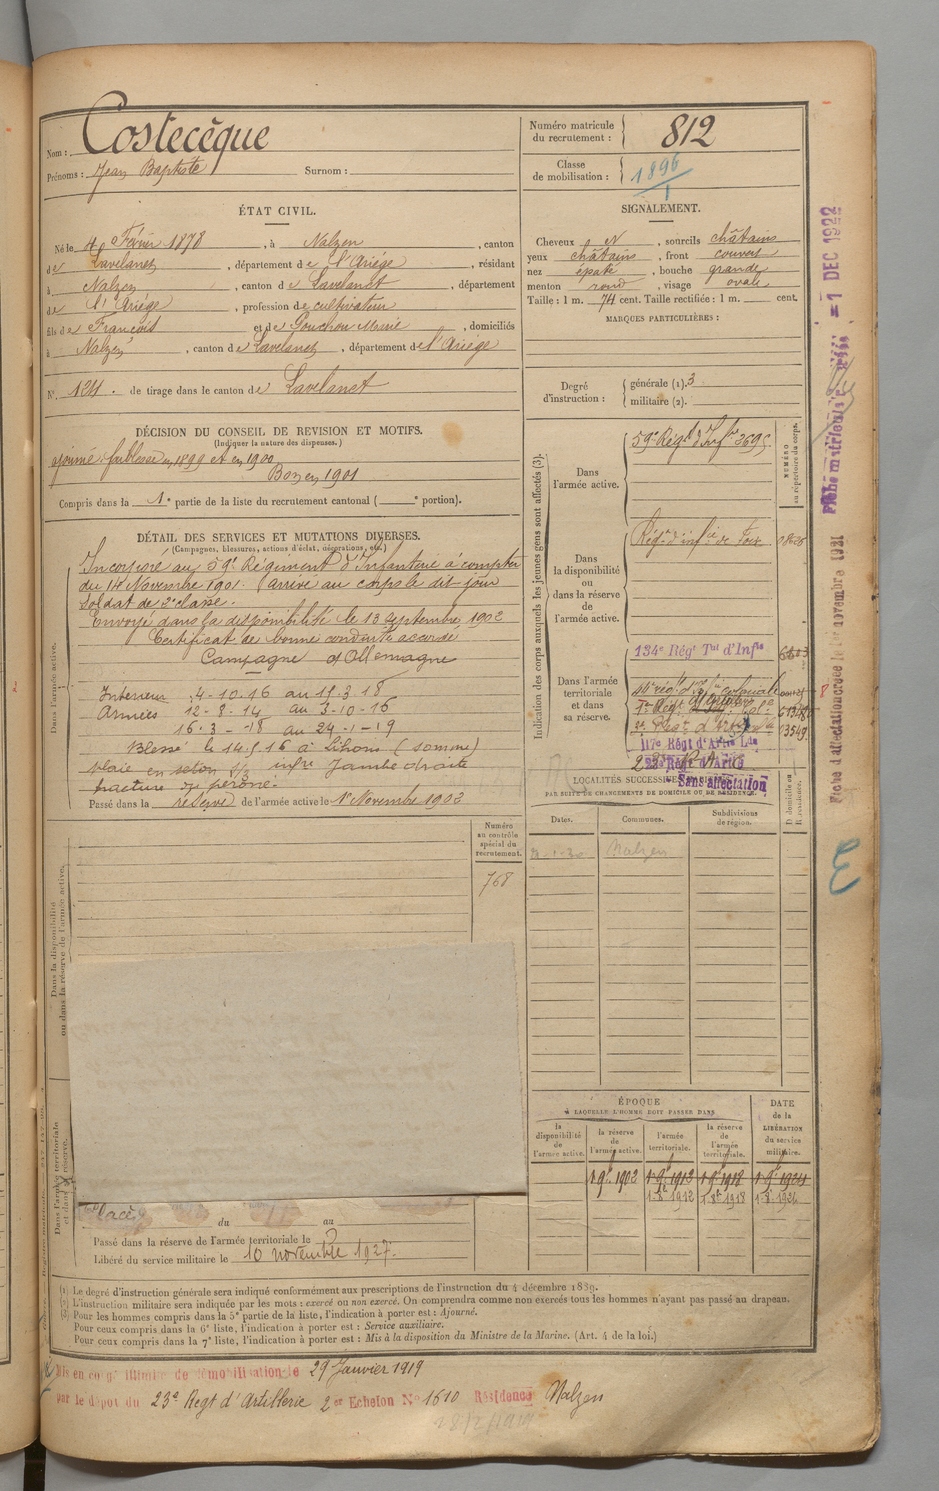 Nom : Costecèque
Prénoms : Jean Baptiste Surnom :
ÉTAT CIVIL.
Né le 4 Février 1878, à Nalzen, canton
de Lavelanet, département de l'Ariége, résidant
à Nalzen, canton de Lavelanet, département
de l'Ariège, profession de cultivateur
fils de François et de Pouchou Marie, domiciliés
à Nalzen, canton de Lavelanet, département de l'Ariége
N° 124. de tirage dans le canton de Lavelanet
DÉCISION DU CONSEIL DE REVISION ET MOTIFS.
(Indiquer la nature des dispenses.)
ajourné faiblesse en 1899 et en 1900
Bon en 1901
Compris dans la 1e partie de la liste du recrutement cantonal ( e portion).
DÉTAIL DES SERVICES ET MUTATIONS DIVERSES.
(Campagnes, blessures, actions d'éclat, décorations, etc.)
Dans l'armée active.
Incorporé au 59e Régiment d'Infanterie à compter
du 14 Novembre 1901. (arrivé au corps le dit jour
soldat de 2e classe.
Envoyé dans la disponibilité le 13 Septembre 1902
Certificat de bonne conduite accordé
Campagne d'Allemagne
Intérieur 4-10-16 au 15-3-18
Armées 12-8-14 au 3-10-16
16-3-18 au 24-1-19
Blessé le 14.5.16 à Lihons (Somme)
plaie en seton 1/3 infre Jambe droite
fracture du péroné.
Passé dans la réserve de l'armée active le 1er Novembre 1902
Dans la disponibilité
ou dans la réserve de l'armée active.
Numéro
au contrôle
spécial du
recrutement.
768
Dans l'armée territoriale
et dans sa réserve.
du au
Passé dans la réserve de l'armée territoriale le
Libéré du service militaire le 10 novembre 1927.
Numéro matricule
du recrutement : 812
Classe
de mobilisation : 1896
SIGNALEMENT.
Cheveux N, sourcils châtains
yeux châtains, front couvert
nez épaté, bouche grande
menton rond, visage ovale
Taille : 1 m. 74 cent. Taille rectifiée : 1 m. cent.
MARQUES PARTICULIÈRES :
Degré
d'instruction :
générale (1). 3
militaire (2).
Indication des corps auxquels les jeunes gens sont affectés (3).
NUMÉRO
au répertoire du corps.
Dans
l'armée active.
59e Régt d'Infie 3695
Dans
la disponibilité
ou
dans la réserve
de
l'armée active.
Régt d'infie de Foix
Dans l'armée
territoriale
et dans
sa réserve.
134e Régt Tal d'Infie
03549
117e Régt d'Artie Lde
23e Régt d'Artie
Sans affectation
LOCALITÉS SUCCESSIVES
PAR SUITE DE CHANGEMENTS DE DOMICILE OU DE RÉSIDENCE.
Dates.
Communes.
Subdivisions
de région.
D. domicile ou
R. résidence.
Nalzen
ÉPOQUE
À LAQUELLE L'HOMME DOIT PASSER DANS
la
disponibilité
de
l'armée active.
la réserve
de
l'armée active.
l'armée
territoriale.
la réserve
de
l'armée
territoriale.
DATE
de la
LIBÉRATION
du service
militaire.
1 9bre 1902 1 9bre 1912 1 9bre 1918 1 9bre 1924
1-8r 1912 1 8r 1918 1-8-1926
(1) Le degré d'instruction générale sera indiqué conformément aux prescriptions de l'instruction du 4 décembre 1889.
(2) L'instruction militaire sera indiquée par les mots : exercé ou non exercé. On comprendra comme non exercés tous les hommes n'ayant pas passé au drapeau.
(3) Pour les hommes compris dans la 5e partie de la liste, l'indication à porter est : Ajourné.
Pour ceux compris dans la 6e liste, l'indication à porter est : Service auxiliaire.
Pour ceux compris dans la 7e liste, l'indication à porter est : Mis à la disposition du Ministre de la Marine. (Art. 4 de la loi.)
Mis en congé illimité de démobilisation le 29 Janvier 1919
par le dépôt du 23e Regt d'Artillerie 2er Echelon No 1610 Résidence Nalzen
1 DEC 1922
Fiche d'affectation créée le novembre 1931